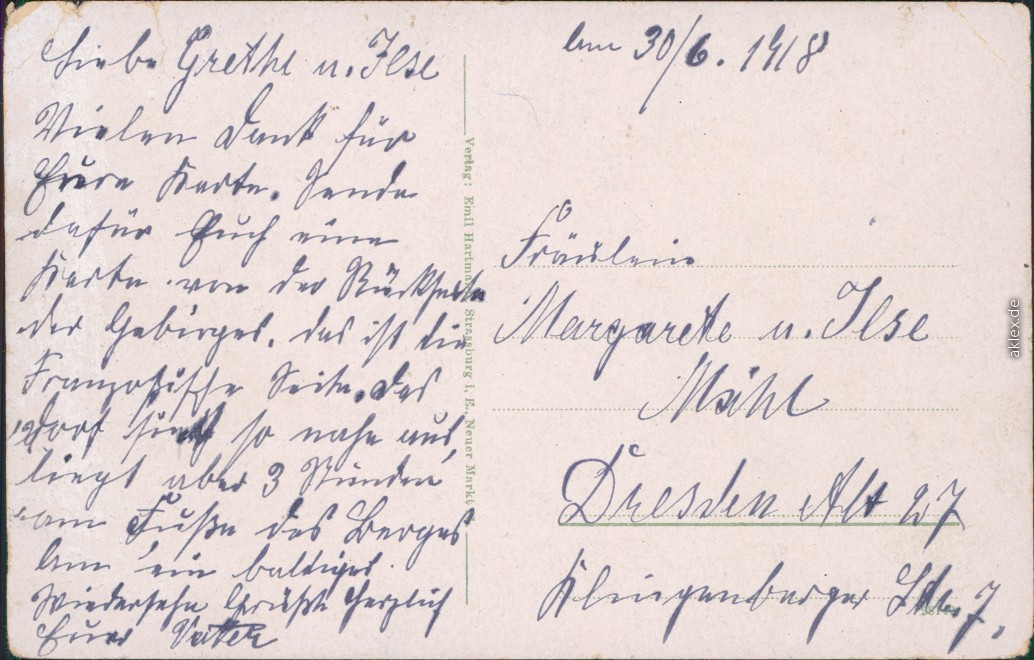 Liebe Grethe u. Ilse
Vielen Dank für
Eure Karte. Sende
dafür Euch eine
Karte von der Rückseite
des Gebirges. das ist die
Französische Seite. das
Dorf sieht so nahe aus,
liegt aber 3 Stunden
am Fuße des Berges
ein baldiges
Wiedersehn Grüßt herzlich
Euer Vater
Verlag: Emil Hartmann, Strassburg i. E., Neuer Markt
am 30/6. 1918
Fräulein
Margarete u. Ilse
Mühl
Dresden Alt 27
Klingenberger Str. 7.
aklex.de